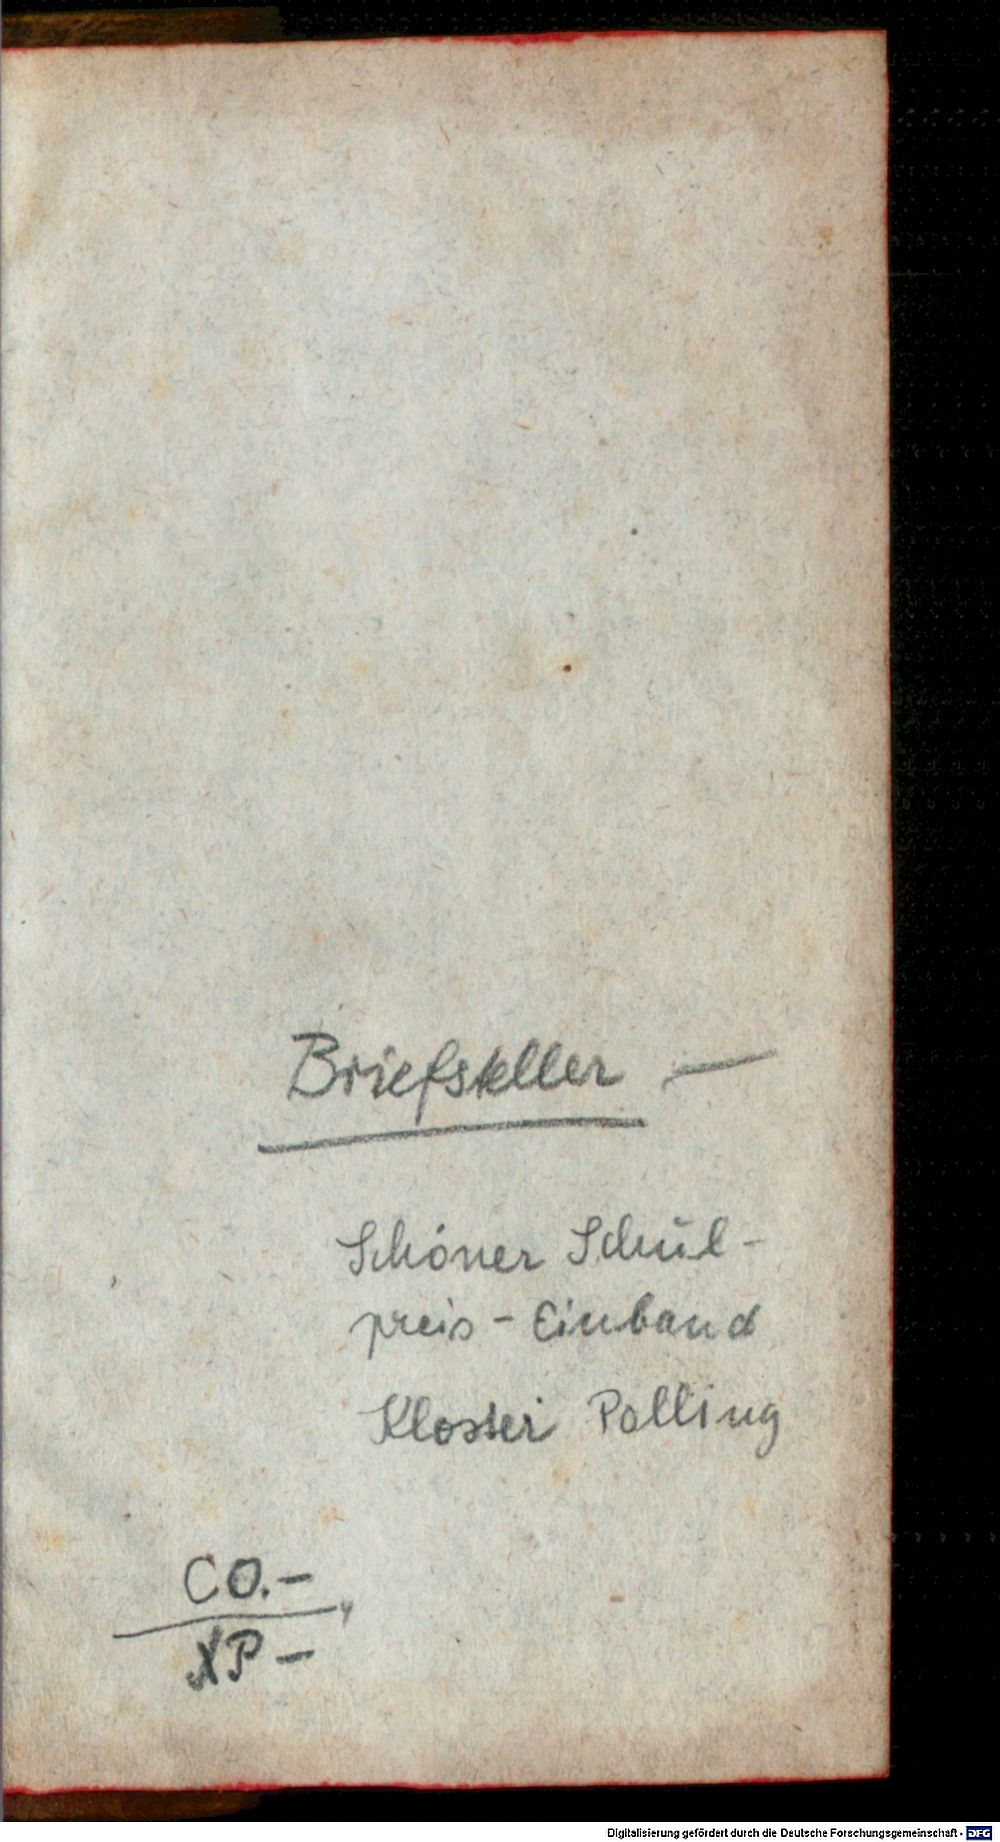 Briefsteller —
Schöner Schul-
preis-Einband
Kloster Polling
CO.-
XP-
Digitalisierung gefördert durch die Deutsche Forschungsgemeinschaft - DFG